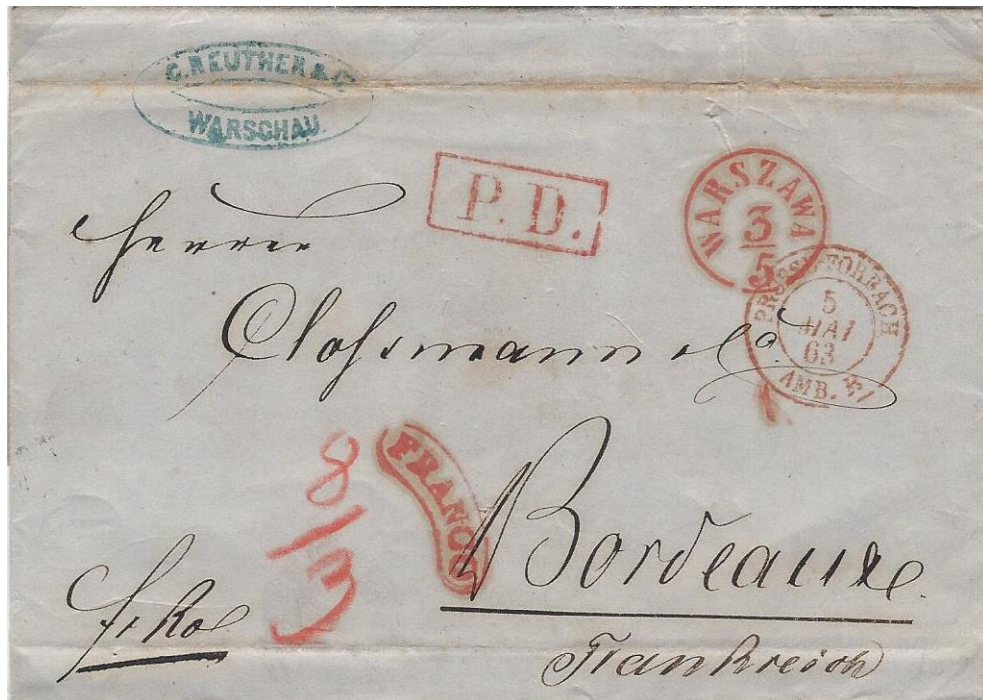 C. REUTHER & Co
WARSCHAU.
P. D.
WARSZAWA
3/5
PRUSSE FORBACH
5
MAI
63
AMB.
Herren
Clossmann & Co.
8/3
FRANCO
Bordeaux.
frko
Frankreich